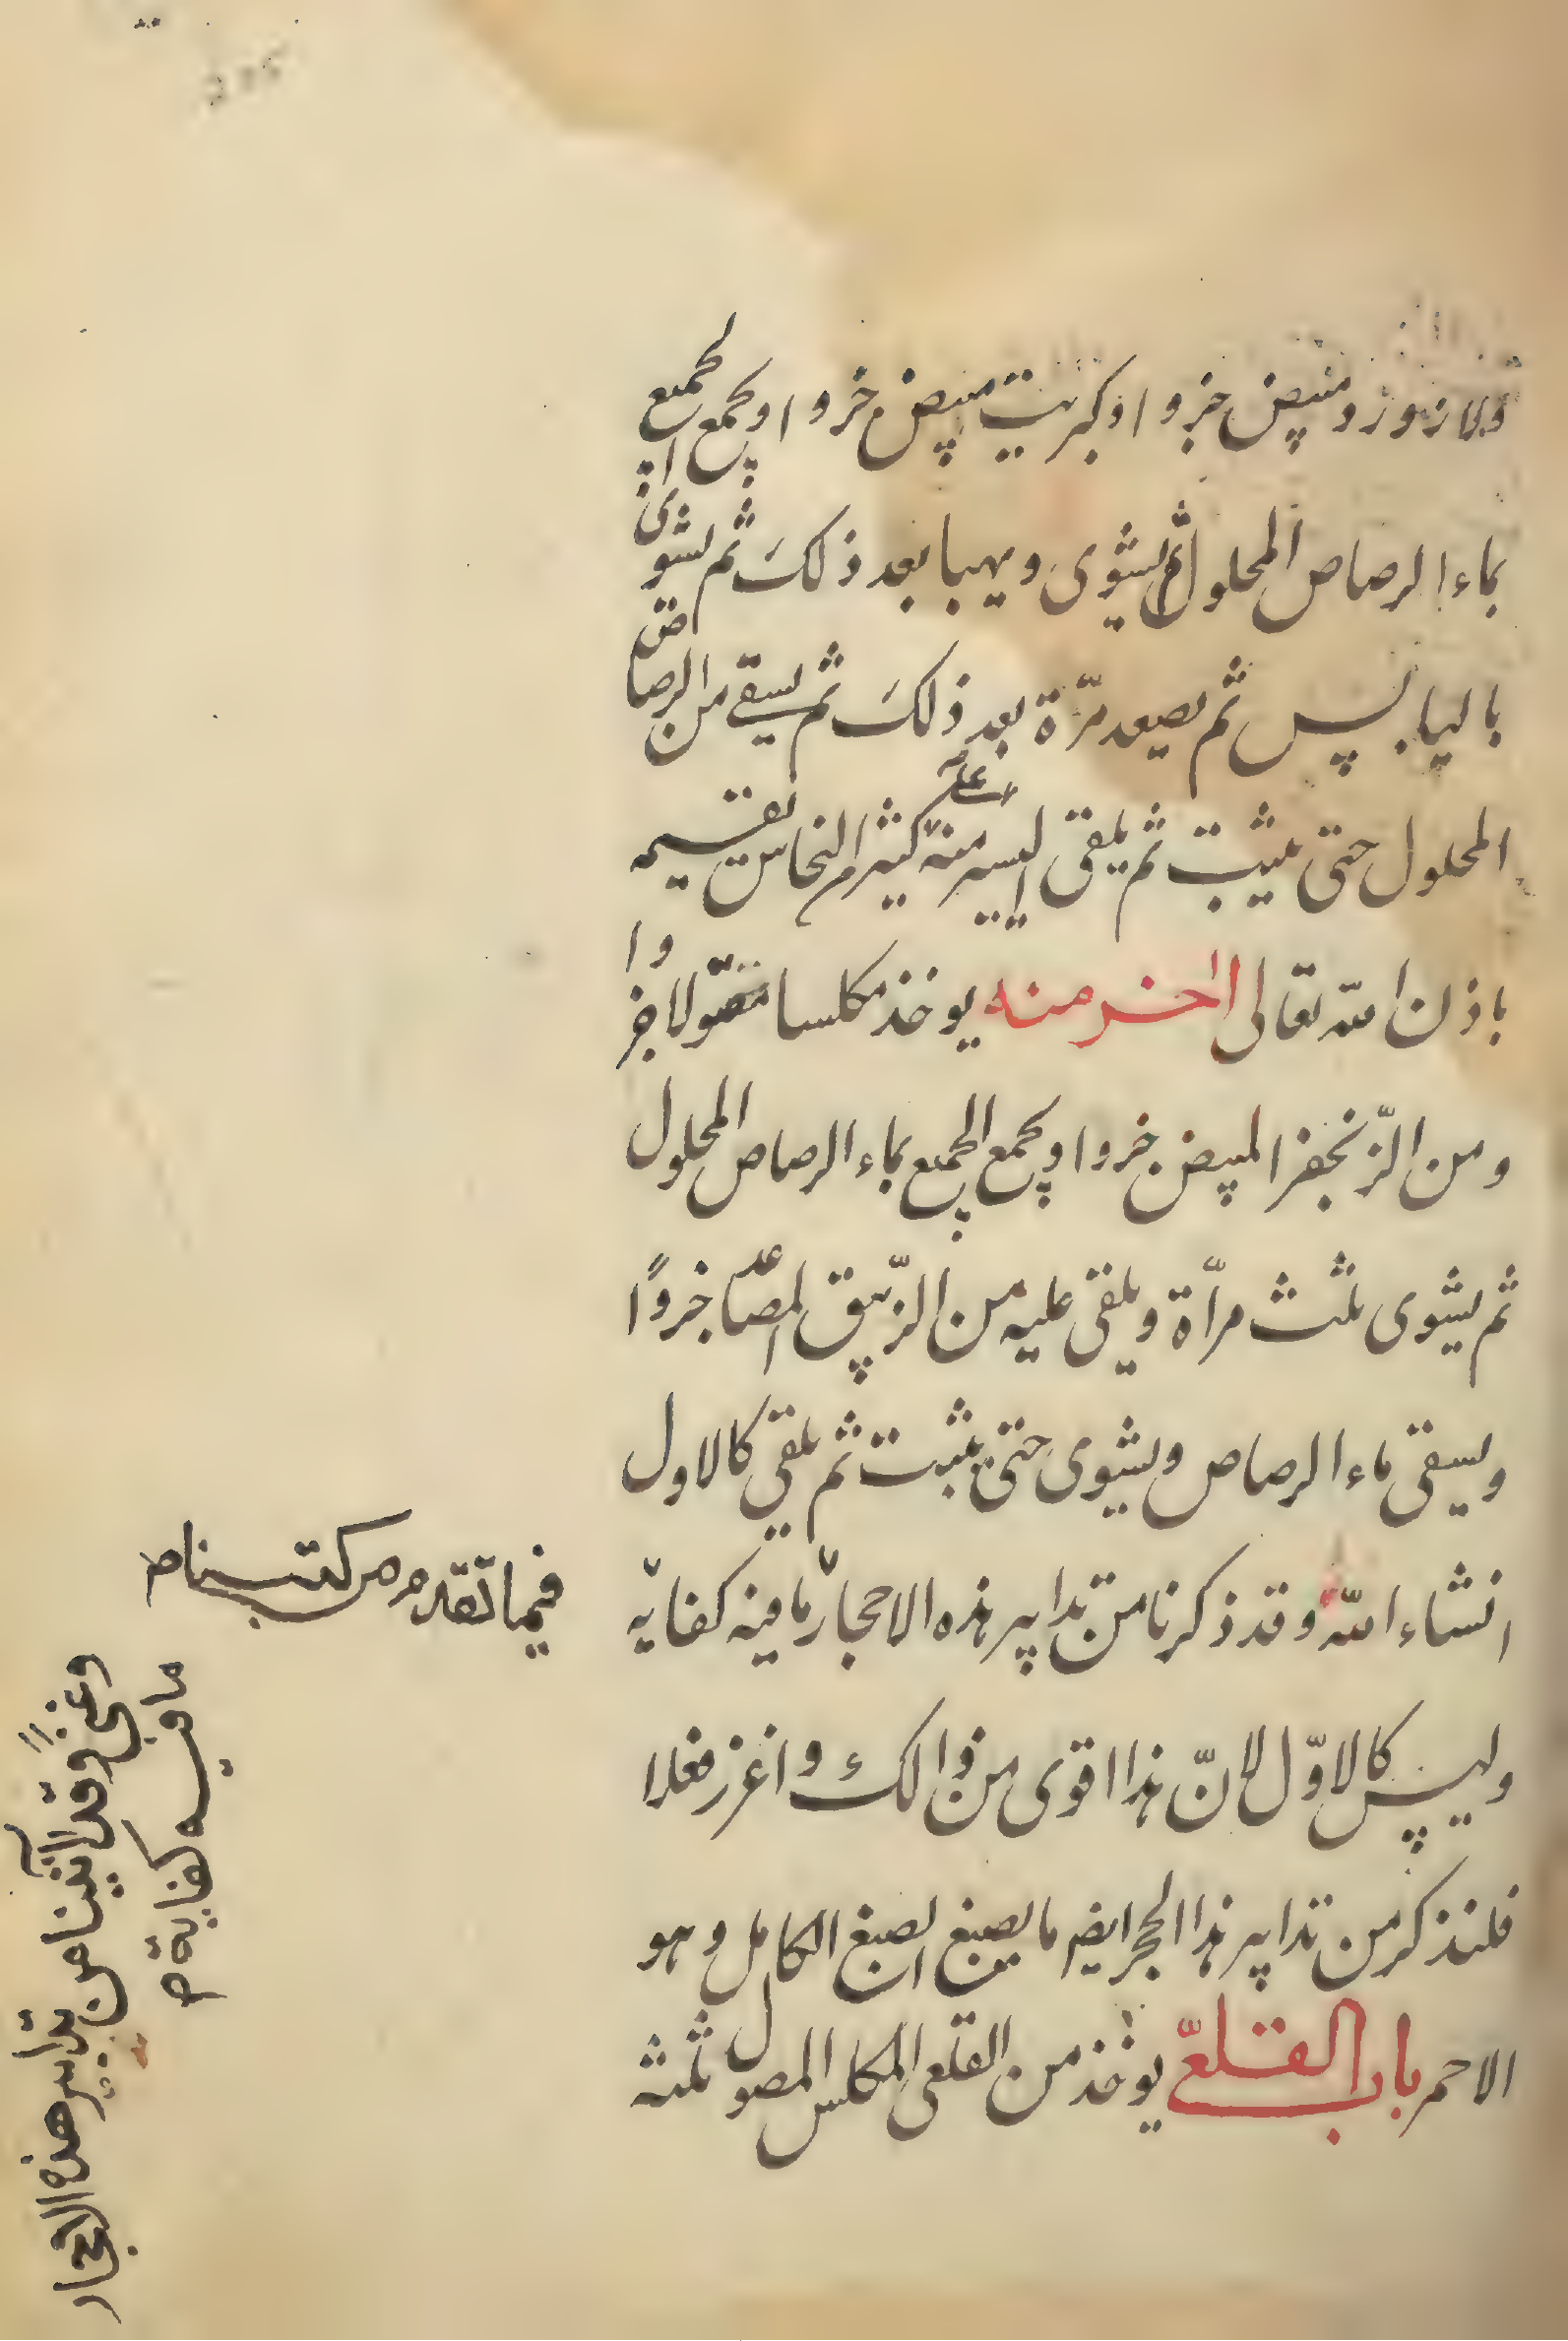 ولازورد مبيض جزوا وكبريت مبيض جزوا ويجمع الجميع
بماء الرصاص المحلول ثم يشوى ويهبا بعد ذلك ثم يشوى
باليابس ثم يصعد مرّة بعد ذلك ثم يسقى من الرصاص
المحلول حتى يثبت ثم يلقى اليسير منه على كثير النحاس تقيمه
باذن الله تعالى اخر منه يوخذ مكلسا مصّولا جزوا
ومن الزّنجفر المبيض جزوا ويجمع الجميع بماء الرصاص المحلول
ثم يشوى ثلث مرّاة ويلقى عليه من الزّيبق المصّاعد جزوًا
ويسقى ماء الرصاص ويشوى حتى يثبت ثم يلقى كالاول
انشاء الله وقد ذكرنا من تدابير هذه الاحجار ما فيه كفايه
وليس كالاوّل لانّ هذا اقوى من ذالك واغزر فعلا
فلنذكر من تدابير هذا الحجر ايضا ما يصبغ الصبغ الكامل وهو
الاحمر باب القلعىّ يوخذ من القلعى المكلس المصول ثلثه
فيما تقدم من كتبنا ما
ما فيه كفاية
وغنىً وقد اتينا من تدابير هذه الاحجار